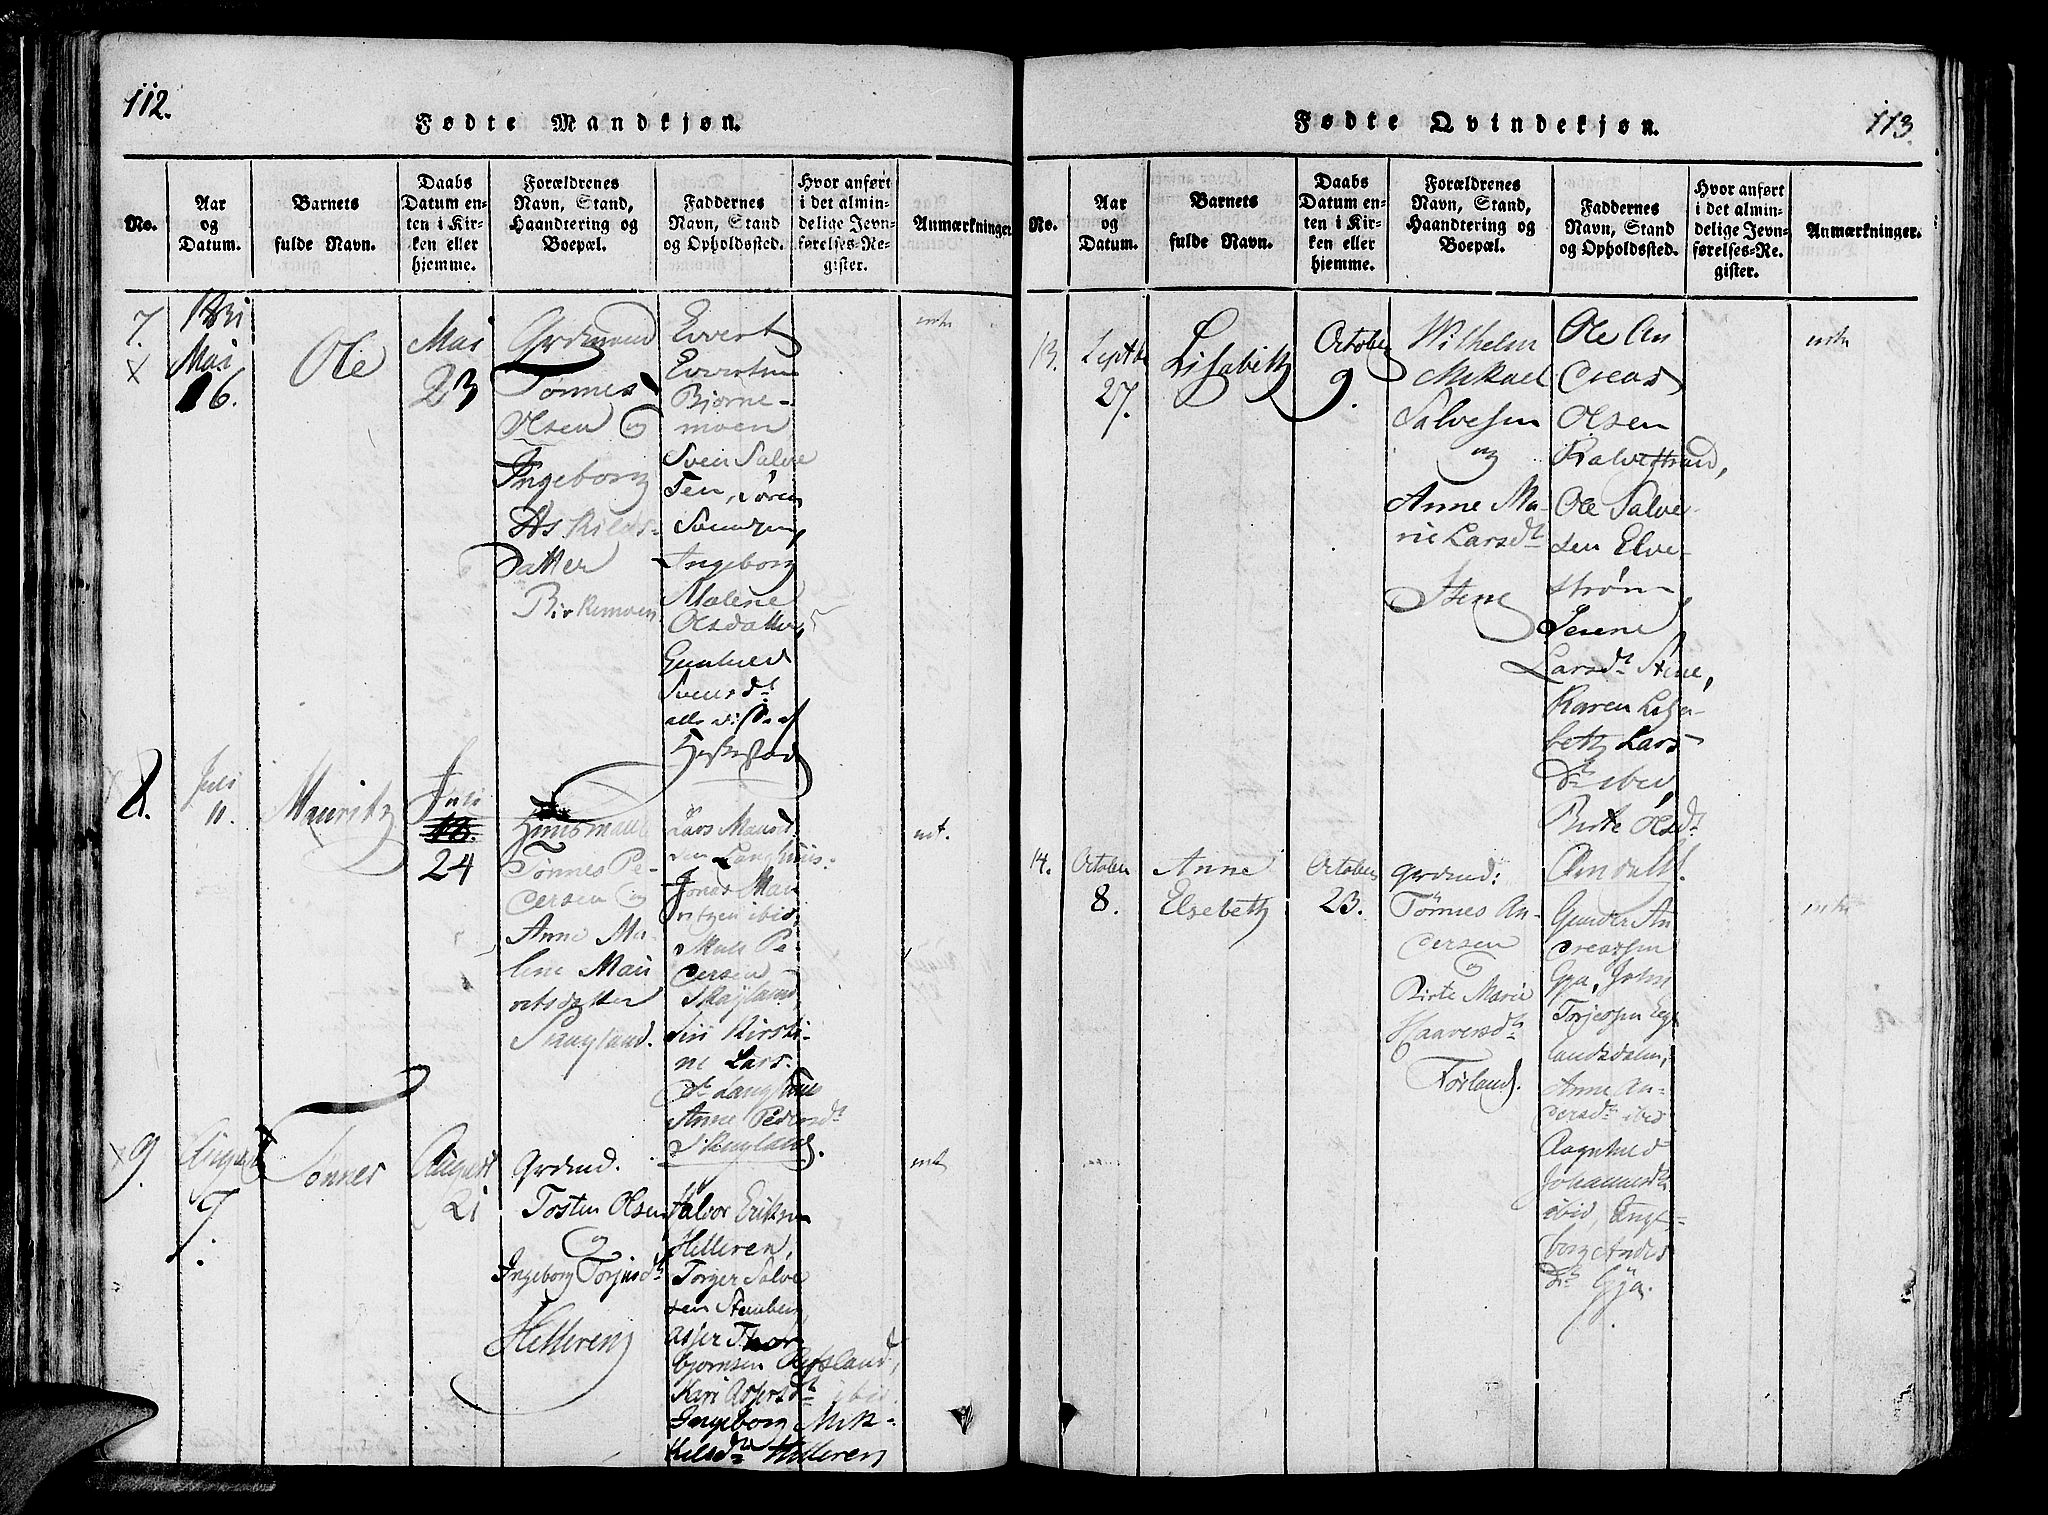 112.
Fødte Mandkjøn.
No.
Aar
og
Datum.
Barnets
fulde Navn.
Daabs
Datum en-
ten i Kir-
ken eller
hjemme.
Forældrenes
Navn, Stand,
Haandtering og
Boepæl.
Faddernes
Navn, Stand
og Opholdssted.
Hvor anført
i det almin-
delige Jevn-
førelses-Re-
gister.
Anmærkninger
7.
X
1831
Mai
16.
Ole
Mai
23
Grdmand
Tønnes
Olsen og
Ingeborg
Askilds-
datter
Birkemoen
Evert
Evertsen
Bjørne-
moen
Sven Salve
sen, Søren
Svendsen,
Ingeborg
Malene
Olsdatter,
Gunhild
Svensdt
alle disse af
Heskestad
8.
Juli
11.
Mauritz
Juli
24
Huusmand
Tønnes Pe-
dersen og
Anne Ma-
lene Mau
ritsdatter
Skayland.
Lars Maurit
sen Langhuus.
Jonas Mau
ritzen ibid,
Mals Pe-
dersen
Skayland
Siri Kirsti-
ne Lars-
dt Langhuus
Anne Pedersdt
Skayland.
9.
August
7.
Tønnes
August
21
Grdmd.
Tosten Olsen
og
Ingeborg Torjusdt
Helleren
Halvor Eriksen
Helleren,
Torger Salve
sen Stenberg
Asser Thor
bjornsen Refsland,
Kari Assersdt ibid
Ingeborg Mik-
kelsdt Helleren
113.
Fødte Qvindekjøn.
No.
Aar
og
Datum.
Barnets
fulde Navn.
Daabs
Datum en-
ten i Kir-
ken eller
hjemme.
Forældrenes
Navn, Stand,
Haandtering og
Boepæl.
Faddernes
Navn, Stand
og Opholdssted.
Hvor anført
i det almin-
delige Jevn-
førelses-Re-
gister.
Anmærkninger.
13.
Septbr
27.
Lisabeth
October
9.
Wilhelm
Mikael
Salvesen
og
Anne Ma-
rie Larsdt
Stene
Ole An
dreas
Olsen
Kalvestrand,
Ole Salve-
sen Elve-
strøm,
Serine
Larsdt Stene,
Karen Lisa-
beth Lars
dt ibid,
Birte Olsdt
Omdal.
14.
October
8.
Anne
Elsebeth
October
23.
Grdmd:
Tønnes An-
dersen
og
Birte Marie
Haaversdt
Tørland.
Gunder An
dreassen
Gya, John
Torjessen Ege
landsdalen,
Anne An-
dersdt ibid
Aagnhild
Johannesdt
ibid, Inge-
borg Anders
dt Gya.